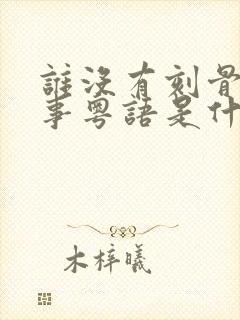 誰沒有刻骨
事粵語是什
木梓曦